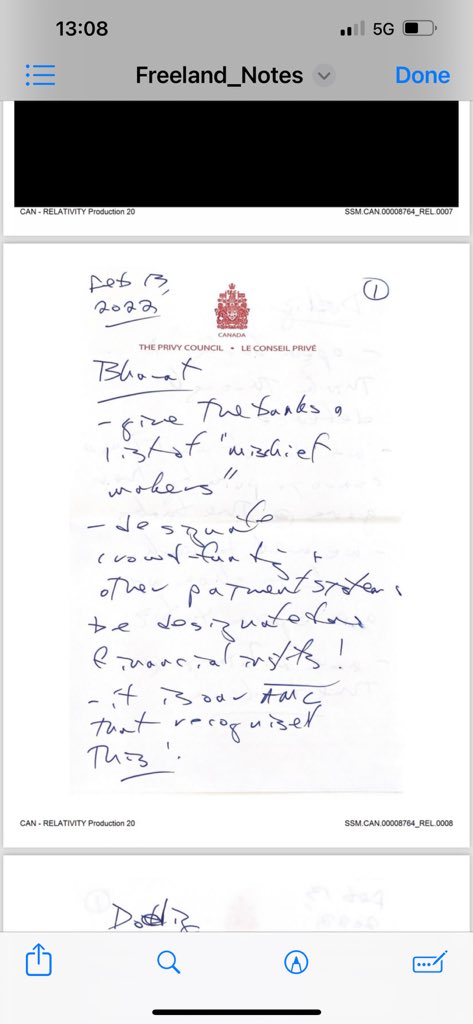 13:08
5G
Freeland_Notes
Done
CAN - RELATIVITY Production 20
SSM.CAN.00008764_REL.0007
Feb 13,
2022
1
CANADA
THE PRIVY COUNCIL • LE CONSEIL PRIVÉ
Bharat
- give the banks a
list of "mischief
makers"
- designate
crowd-funding +
other payment systems
be designated as
financial insts!
- it is our AMC
that recognized
This!
CAN - RELATIVITY Production 20
SSM.CAN.00008764_REL.0008
Dodig